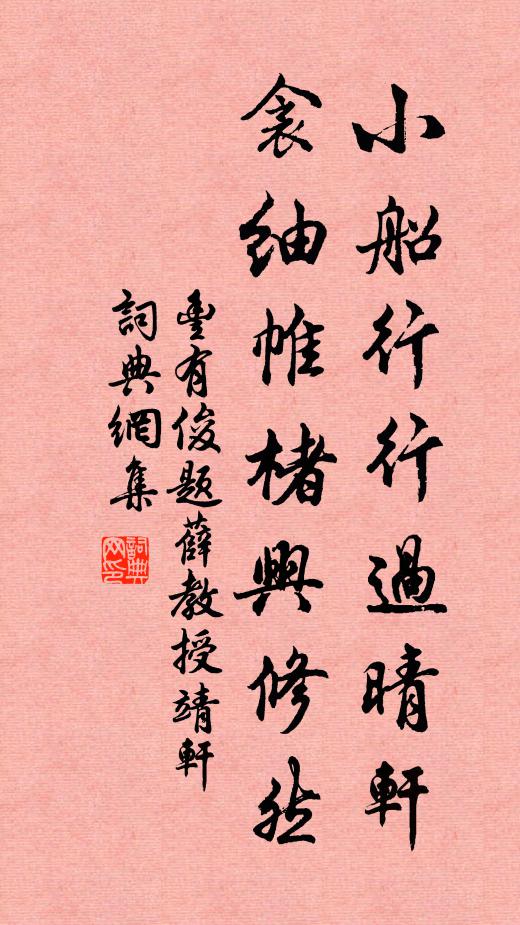 小船行行過晴軒
衾紬帷楮興修然
豐有俊題薛教授靖軒
詞典網集
詞典網印